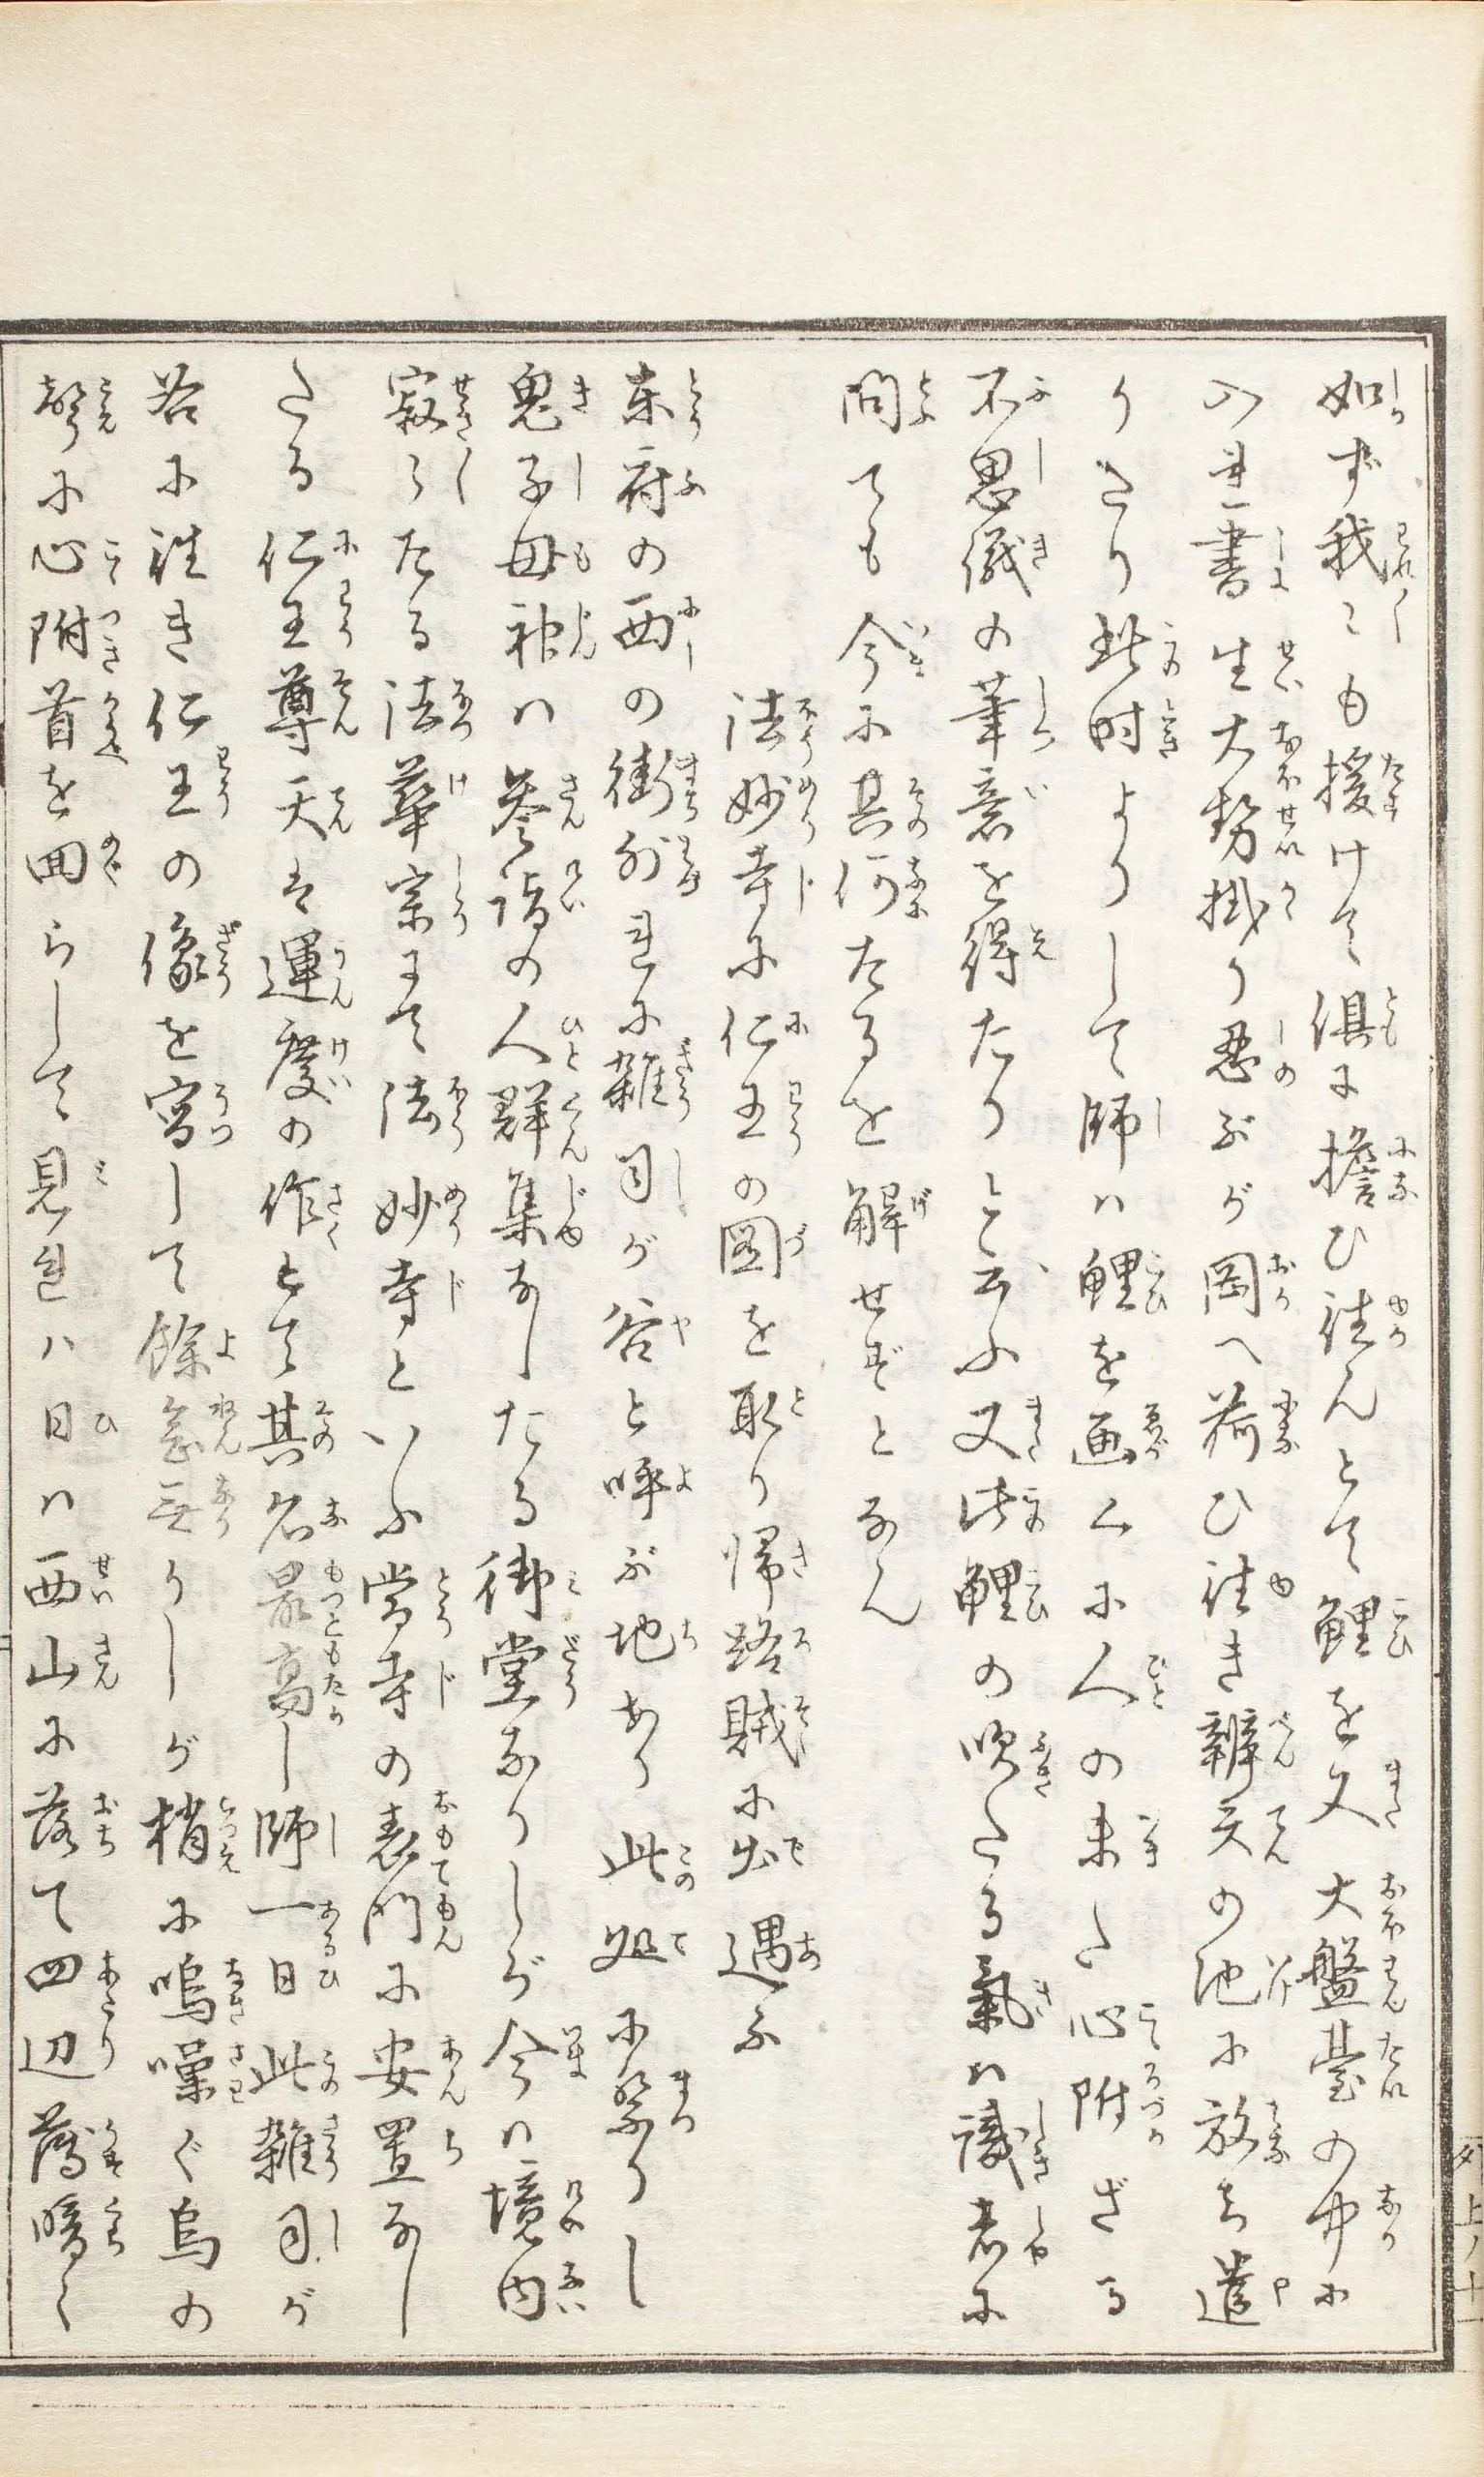 如ず我〻も援けて倶に擔ひ往んとて鯉を又大盤臺の中に
入れ書生大勢掛り忍ぶが岡へ荷ひ往き辨天の池に放ち遣
りたり此時よりして師ハ鯉を画くに人の未た心附ざる
不思儀の筆意を得たりと云ふ又此鯉の吹たる氣ハ識者に
問ても今に其何たるを解せずとなん
法妙寺に仁王の圖を取り帰路賊に出遇ふ
東府の西の街外れに雜司が谷と呼ぶ地あり此処に祭りし
鬼子母神ハ參詣の人群集なしたる御堂なりしが今ハ境内
寂〻たる法華宗にて法妙寺といふ當寺の表門に安置なし
たる仁王尊天は運慶の作とて其名最高し師一日此雜司が
谷に往き仁王の像を寫して餘念無りしが梢に鳴噪ぐ烏の
聲に心附首を回らして見れハ日ハ西山に落て四辺薄暗く
上ノ十一